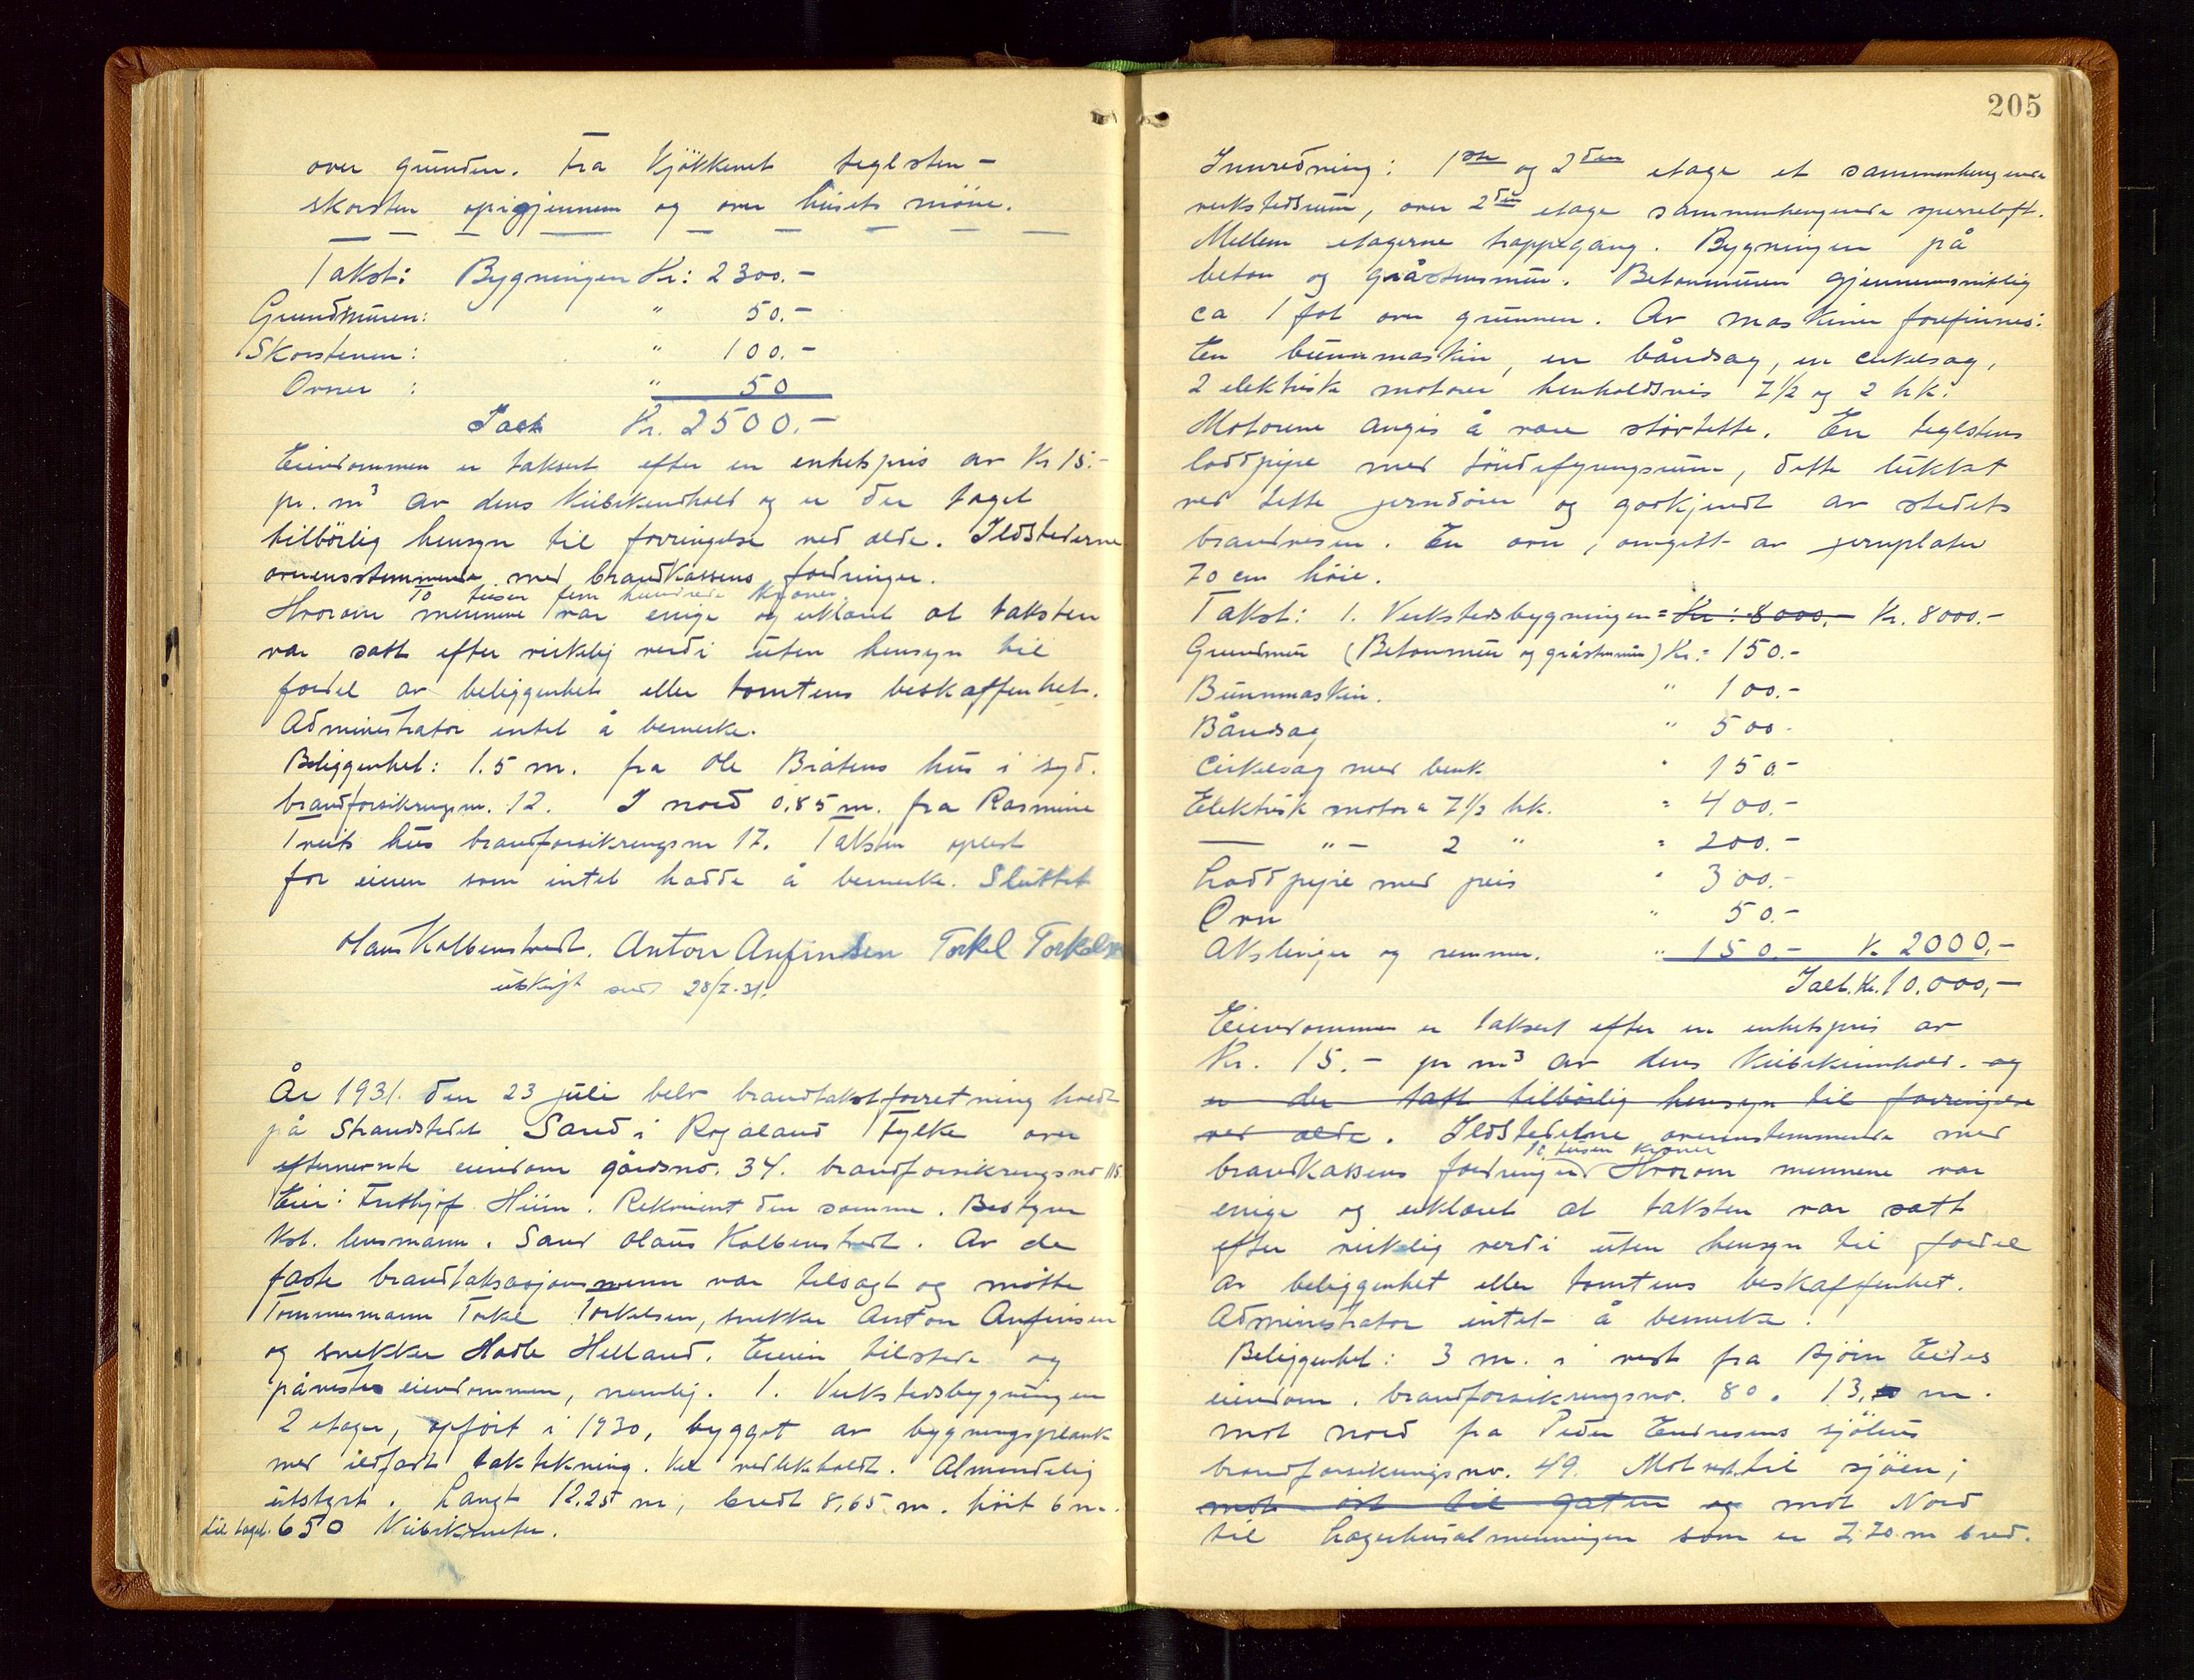 over grunden. Fra kjökkenet teglsten-
skorsten opigjennem og over husets möne.
Takst: Bygningen Kr: 2300.-
Grundmuren: " 50.-
Skorstenen: " 100.-
Ovner : " 50
Ialt Kr. 2500.-
Eiendommen er taksert efter en enhetspris av Kr 15.-
pr. m³ av dens kubikendhold og er der taget
tilbörlig hensyn til forringelse ved elde. Ildstederne
overensstemmende med brandkassens fordringer.
To tusen fem hundrede kroner
Hvorom mennene var enige og erklæret at taksten
var satt efter virkelig verdi uten hensyn til
fordel av beliggenhet eller tomtens beskaffenhet.
Administrator intet å bemerke.
Beliggenhet: 1.5 m. fra Ole Bråtens hus i syd.
brandforsikringsnr. 12. I nord 0,85 m. fra Rasmine
Tveits hus brandforsikringsnr 17. Taksten oplest
for eieren som intet hadde å bemerke. Sluttet
Olaus Kolbenstvedt. Anton Anfinsen Torkel Torkelsen
utskrift sendt 28/7-31.
År 1931. den 23 juli belv brandtakstforretning holdt
på Strandstedet Sand i Rogaland Fylke over
efternevnte eiendom gårdsnr. 34. brandforsikringsnr 115.
Eier: Frithjof Hiim. Rekvirent den samme. Bestyrer
Kst. lensmann i Sand Olaus Kolbenstvedt. Av de
faste brandtaksasjonsmenn var tilsagt og møtte
Tømmermann Torkel Torkelsen, snekker Anton Anfinsen
og snekker Hadle Helland. Eieren tilstede og
påvistes eiendommen, nemlig. 1. Verkstedsbygningen
2 etager, opfört i 1930, bygget av bygningsplank
med ildfast taktekning. Vel vedlikeholdt. Almindelig
utstyrt. Langt 12,25 m, bredt 8,65 m. höit 6 m.
til taget. 650 Kubikmeter.
205
Innredning: 1ste og 2den etage et sammenhengende
verkstedsrum, over 2den etage sammenhengende sperreloft.
Mellem etagerne trappegang. Bygningen på
beton og gråstensmur. Betonmuren gjennemsnitlig
ca 1 fot over grunnen. Av maskiner forefinnes:
En bunnmaskin, en båndsag, en cirkelsag,
2 elektriske motorer henholdsvis 7½ og 2 hk.
Motorene angis å være støvtette. En teglstens
loddpipe med töndefyringsrum, dette lukket
ved tette jerndöre og godkjendt av stedets
brandvesen. En ovn, omgitt av jernplater
70 cm höie.
Takst: 1. Verkstedsbygningen = Kr: 8000.- Kr. 8000.-
Grundmur (Betonmur og gråstenmur) Kr. = 150.-
Bunnmaskin. " 100.-
Båndsag " 500.
Cirkelsag med benk " 150.-
Elektrisk motor a 7½ hk. " 400.-
— " — 2 " " 200.-
Loddpipe med peis " 300.-
Ovn " 50.-
Akslinger og remmer. " 150.- Kr. 2000,-
Ialt. Kr. 10.000,-
Eiendommen er taksert efter en enhetspris av
Kr. 15.- pr m³ av dens Kubikinnhold. og
er der tatt tilbörlig hensyn til forringelse
ved elde. Ildstederne overensstemmende med
Ti tusen kroner
brandkassens fordringer Hvorom mennene var
enige og erklæret at taksten var satt
efter virkelig verdi uten hensyn til fordel
av beliggenhet eller tomtens beskaffenhet.
Administrator intet å bemerke.
Beliggenhet: 3 m. i vest fra Björn Eides
eiendom. brandforsikringsnr. 80. 13, m.
mot nord fra Peder Endresens sjöhus
brandforsikringsnr. 49. Mot vest til sjöen;
mot öst til gaten og mot Nord
til Lagerhusalmenningen som er 7,70 m bred.